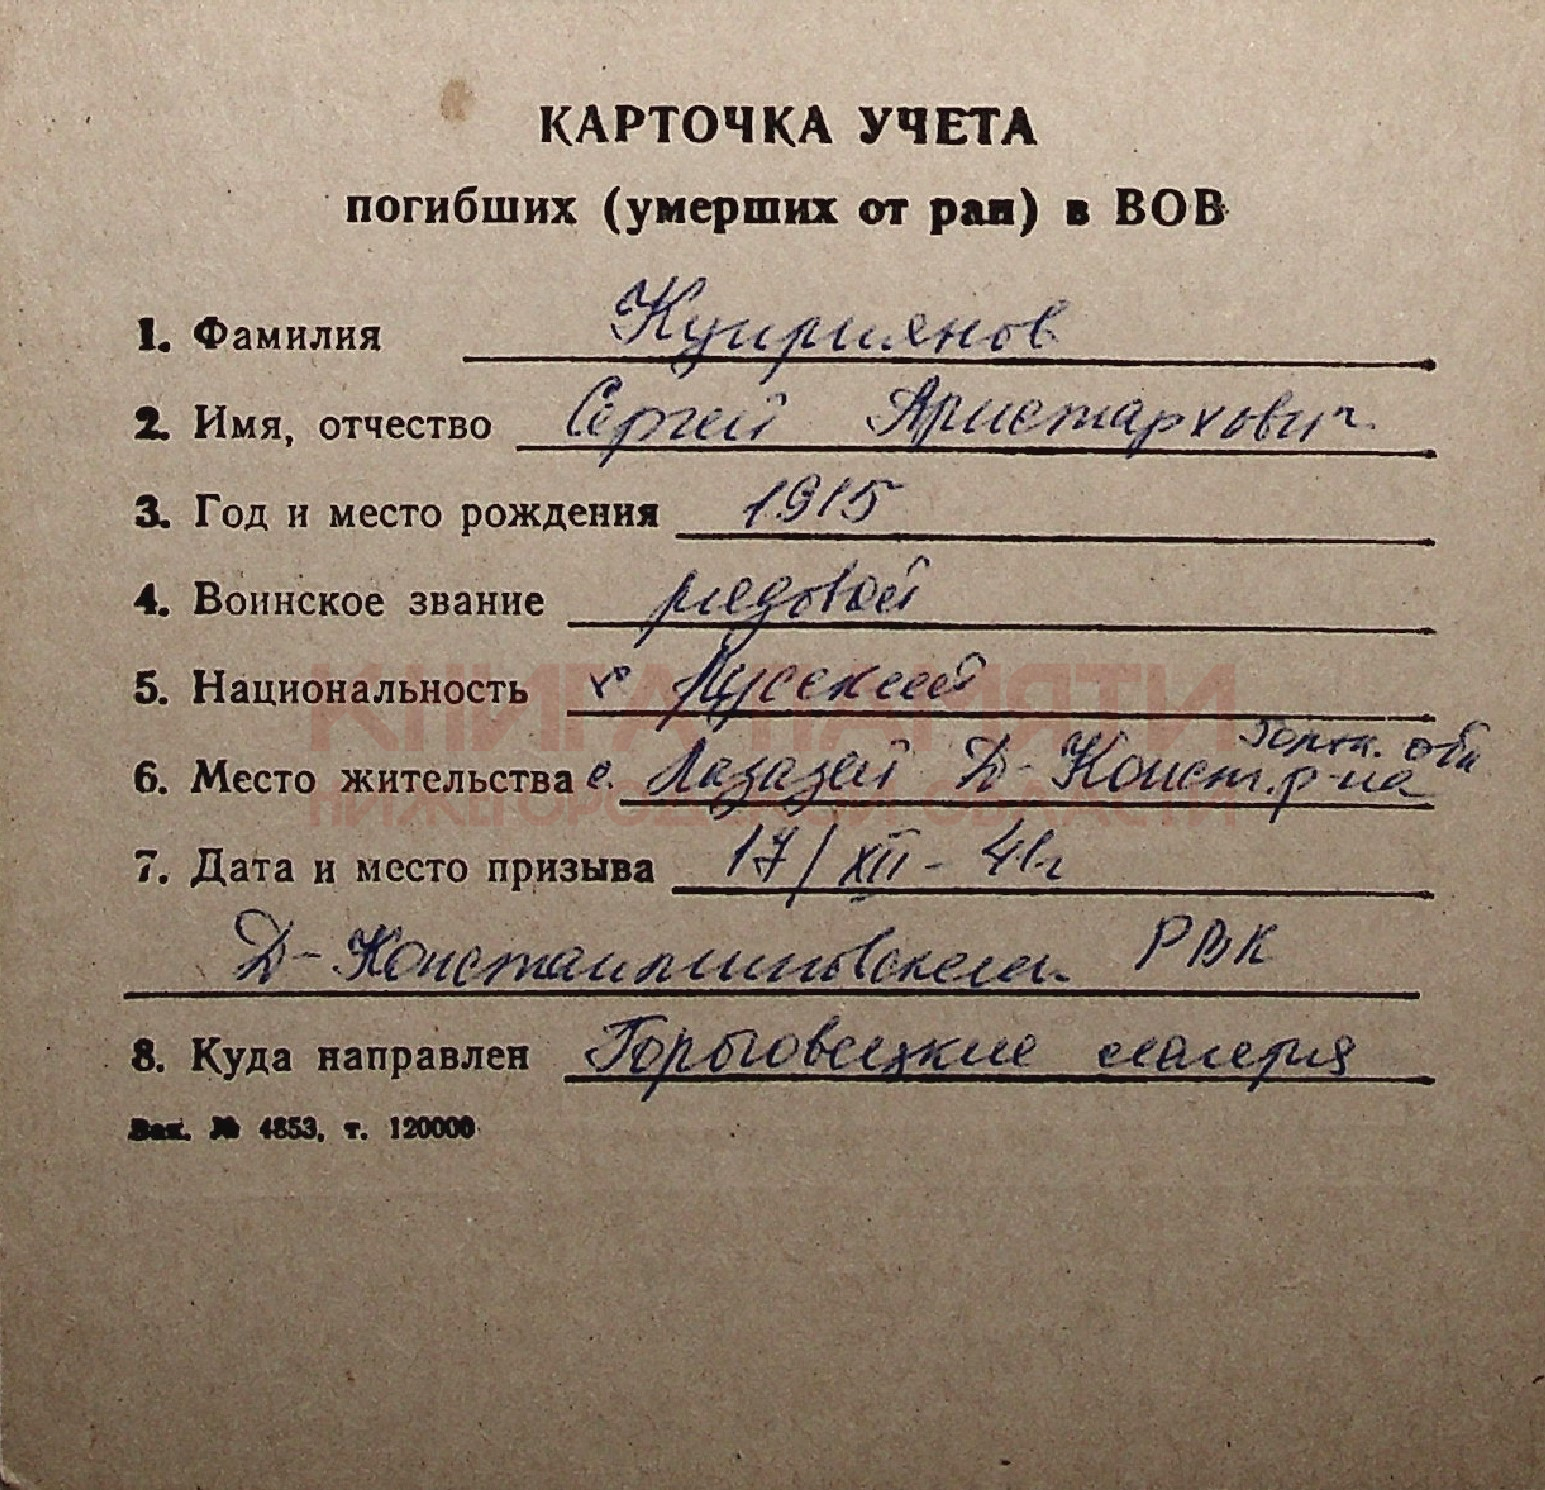 КАРТОЧКА УЧЕТА
погибших (умерших от ран) в ВОВ
1. Фамилия Куприянов
2. Имя, отчество Сергей Аристархович
3. Год и место рождения 1915
4. Воинское звание рядовой
5. Национальность Русский
КНИГА ПАМЯТИ
Горьк. обл
6. Место жительства с. Лазазей Д-Конст. р-на
НИЖЕГОРОДСКОЙ ОБЛАСТИ
7. Дата и место призыва 17/XII - 41г
Д-Константиновским РВК
8. Куда направлен Гороховецкие лагеря
Зак. № 4853, т. 120000